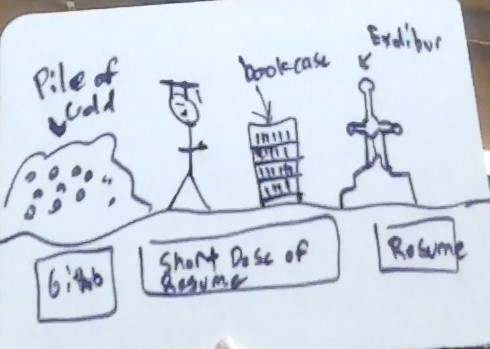 Pile of
Gold
bookcase
Exclibur
Github
Short Dose of
Resume
Resume